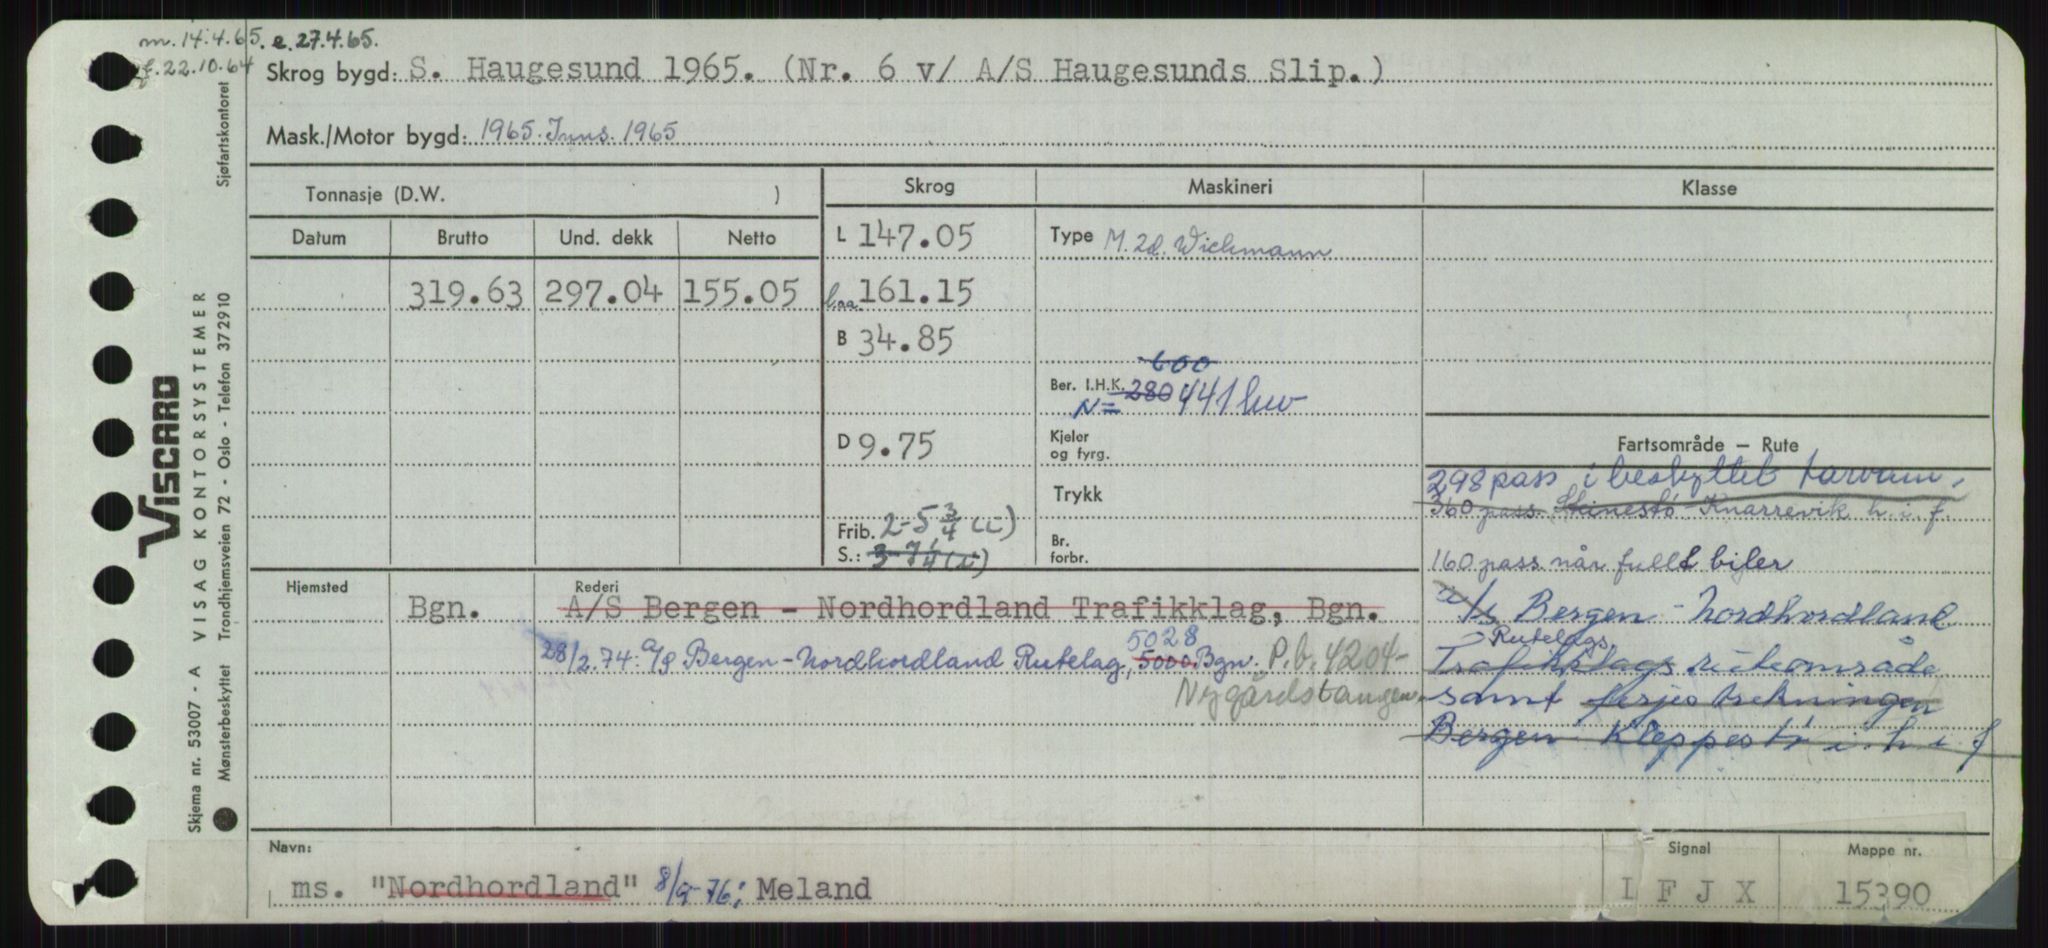 m. 14.4.65. e. 27.4.65.
f. 22.10.64
Skrog bygd: S. Haugesund 1965. (Nr. 6 v/ A/S Haugesunds Slip.)
Mask./Motor bygd: 1965. Inns. 1965
Tonnasje (D.W. )
Skrog
Maskineri
Klasse
Datum
Brutto
Und. dekk
Netto
L 147.05
Type M. 2d. Wichmann
319.63 297.04 155.05
Laa. 161.15
B 34.85
600
Ber. I.H.K. 280 441 hw
N=
D 9.75
Kjeler
og fyrg.
Trykk
Frib. 2-5 3/4 (i)
S.: 3-7 1/4 (i)
Br.
forbr.
Fartsområde – Rute
298 pass i beskyttet farvann.
360 pass. Steinestø-Knarrevik h. i. f.
160 pass når fullt biler
a/s Bergen - Nordhordland
Rutelags
Trafikklags ruteområde
samt ferjestrekningen
Bergen Kleppestø i. h. i. f
Hjemsted
Rederi
Bgn. A/S Bergen - Nordhordland Trafikklag, Bgn.
28/2.74: a/s Bergen-Nordhordland Rutelag, 5000 5028 Bgn. P.b. 4204-
Nygårdstangen
Navn:
ms. "Nordhordland" 8/9-76: Meland
Signal
I F J X
Mappe nr.
15390
Sjøfartskontoret
VISCARD
VISAG KONTORSYSTEMER
Trondhjemsveien 72 - Oslo - Telefon 372910
Skjema nr. 53007 - A
Mønsterbeskyttet